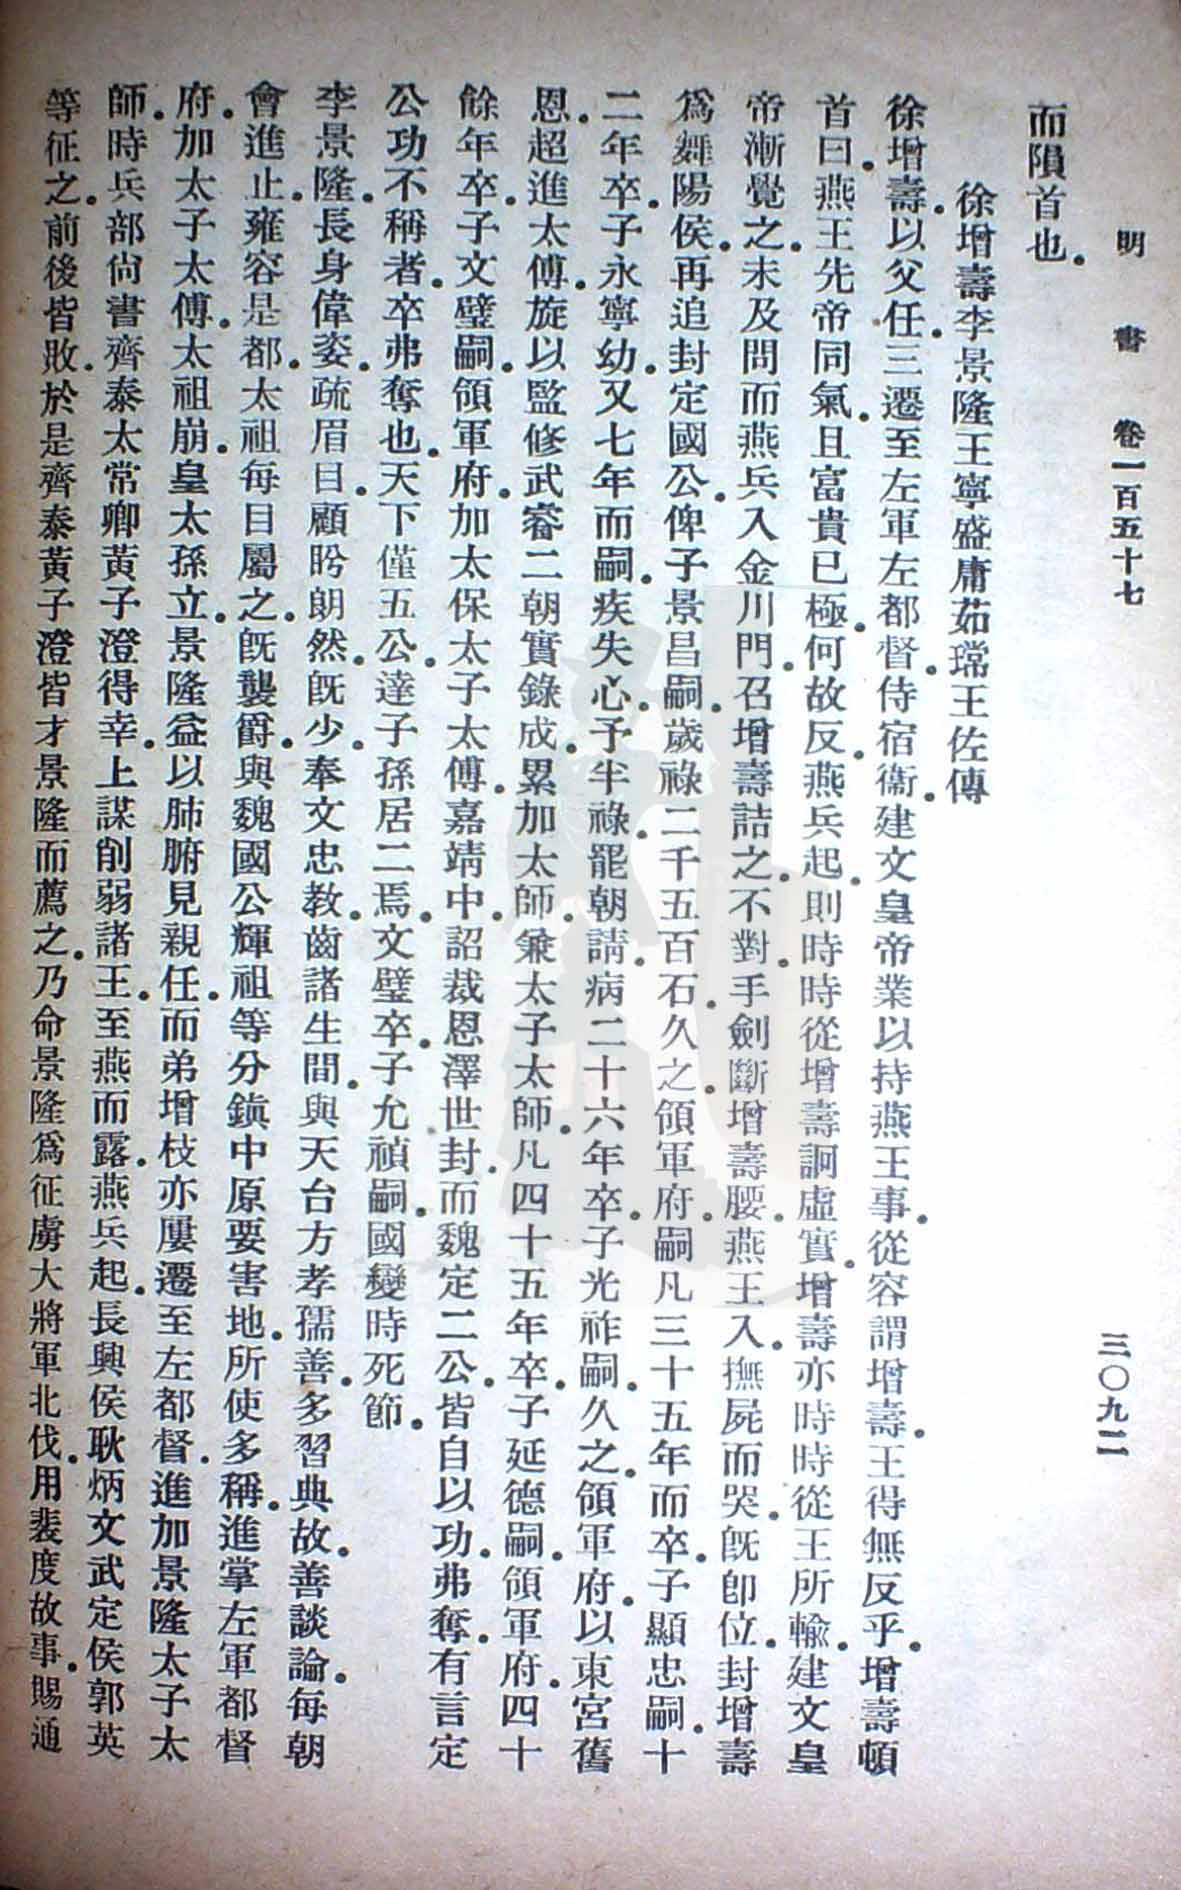 明書 卷一百五十七 三〇九二
而隕首也。
徐增壽李景隆王寧盛庸茹瑺王佐傳
徐增壽。以父任。三遷至左軍左都督。侍宿衞。建文皇帝業以持燕王事。從容謂增壽。王得無反乎。增壽頓
首曰。燕王先帝同氣。且富貴已極。何故反。燕兵起。則時時從增壽詗虛實。增壽亦時時從王所輸。建文皇
帝漸覺之。未及問而燕兵入金川門。召增壽詰之。不對。手劍斷增壽腰。燕王入。撫屍而哭。旣卽位。封增壽
爲舞陽侯。再追封定國公。俾子景昌嗣。歲祿二千五百石。久之。領軍府。嗣凡三十五年而卒。子顯忠嗣。十
二年卒。子永寧幼。又七年而嗣。疾失心。予半祿。罷朝請。病二十六年卒。子光祚嗣。久之。領軍府。以東宮舊
恩。超進太傅。旋以監修武審二朝實錄成。累加太師。兼太子太師。凡四十五年卒。子延德嗣。領軍府。四十
餘年卒。子文璧嗣。領軍府。加太保太子太傅。嘉靖中。詔裁恩澤世封。而魏定二公。皆自以功。弗奪。有言定
公功不稱者。卒弗奪也。天下僅五公。達子孫居二焉。文璧卒。子允禎嗣。國變時死節。
李景隆。長身偉姿。疏眉目。顧盻朗然。旣少。奉文忠教。齒諸生間。與天台方孝孺善。多習典故。善談論。每朝
會進止。雍容是都。太祖每目屬之。旣襲爵。與魏國公輝祖等分鎮中原要害地。所使多稱。進掌左軍都督
府。加太子太傅。太祖崩。皇太孫立。景隆益以肺腑見親任。而弟增枝亦屢遷至左都督。進加景隆太子太
師。時兵部尙書齊泰太常卿黃子澄得幸。上謀削弱諸王。至燕而露。燕兵起。長興侯耿炳文武定侯郭英
等征之。前後皆敗。於是齊泰黃子澄皆才景隆而薦之。乃命景隆爲征虜大將軍北伐。用裴度故事。賜通